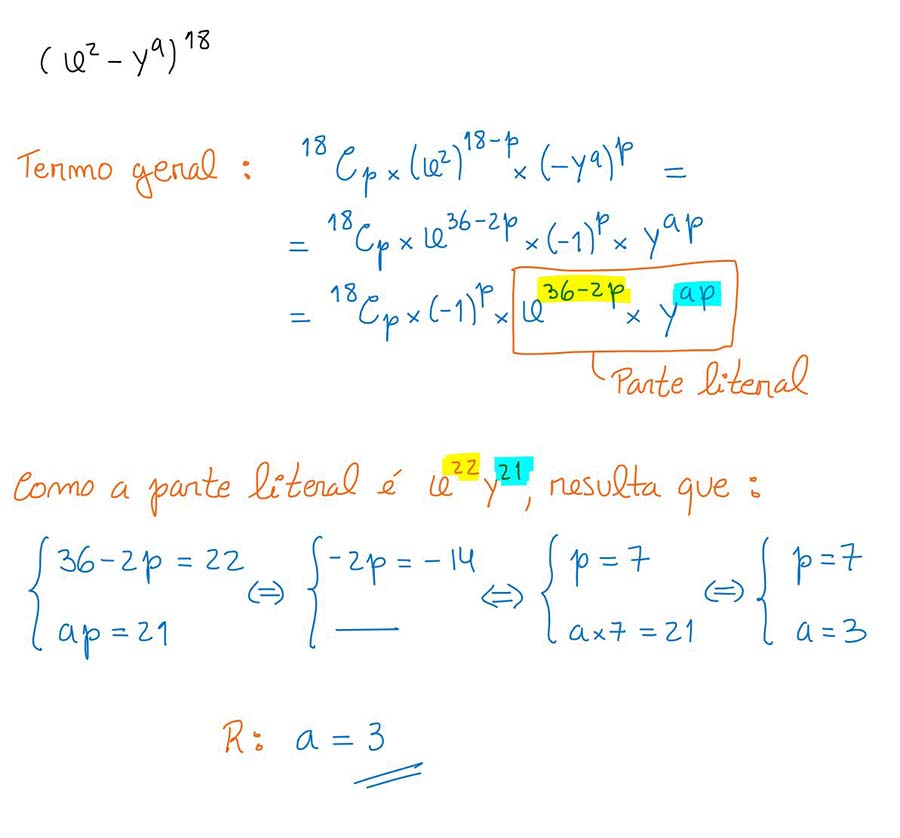 (x² - y^a)^18
Termo geral : ¹⁸C_p × (x²)^(18-p) × (-y^a)^p =
= ¹⁸C_p × x^(36-2p) × (-1)^p × y^(ap)
= ¹⁸C_p × (-1)^p × x^(36-2p) × y^(ap)
Parte literal
Como a parte literal é x^22 y^21, resulta que :
{ 36-2p = 22 ⇔ { -2p = -14 ⇔ { p = 7 ⇔ { p = 7
{ ap = 21 { —— { a×7 = 21 { a = 3
R: a = 3